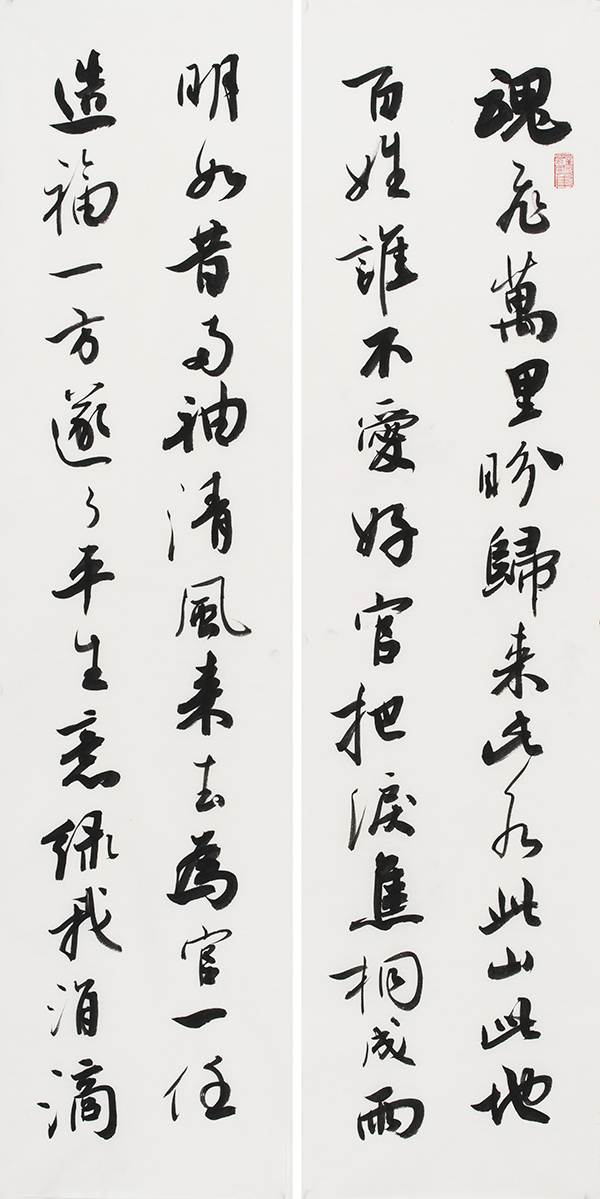 魂飛萬里盼歸来此水此山此地
百姓誰不愛好官把淚焦桐成雨
明如昔兩袖清風来去為官一任
造福一方遂了平生意绿我涓滴